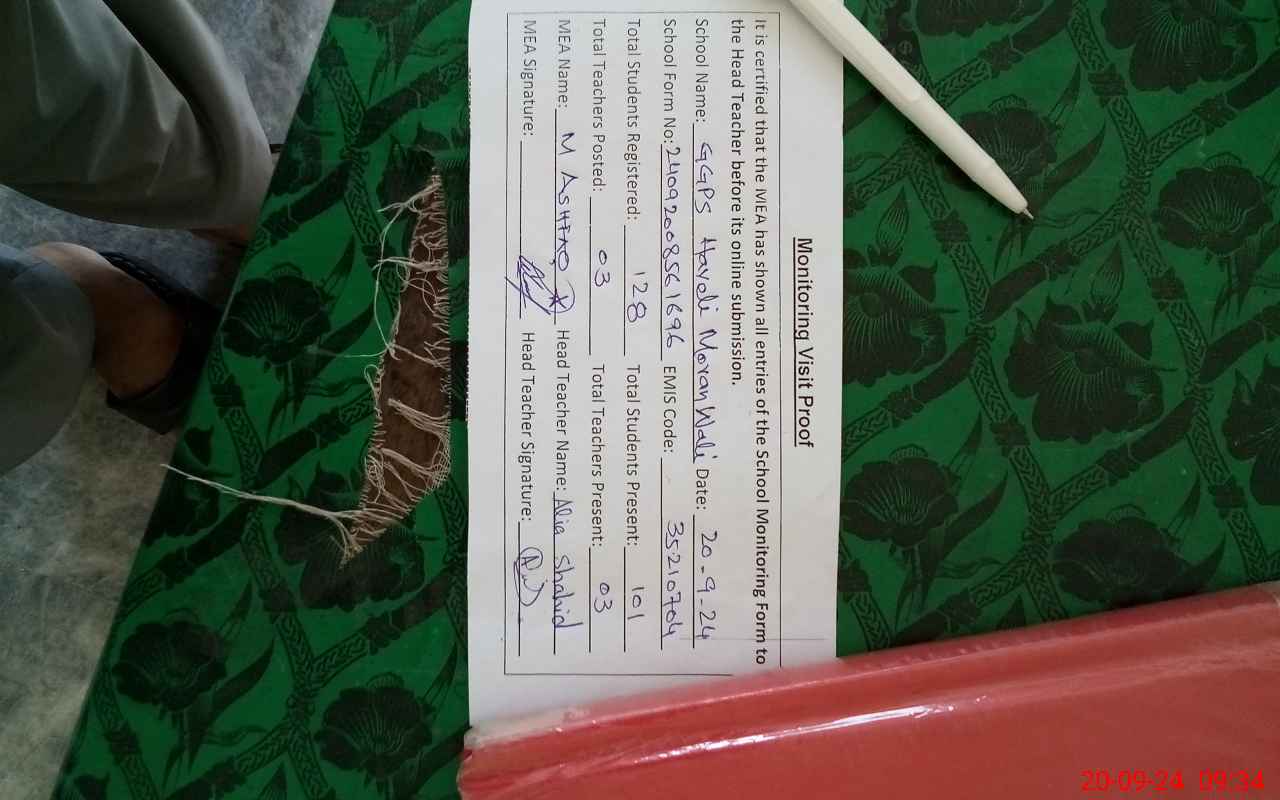 Monitoring Visit Proof
It is certified that the MEA has shown all entries of the School Monitoring Form to
the Head Teacher before its online submission.
School Name: GGPS Haveli Moran Wali Date: 20-9-24
School Form No: 24092008561696 EMIS Code: 35210704
Total Students Registered: 128 Total Students Present: 101
Total Teachers Posted: 03 Total Teachers Present: 03
MEA Name: M Head Teacher Name: Alia Shahid
MEA Signature: Head Teacher Signature:
20-09-24 09:34